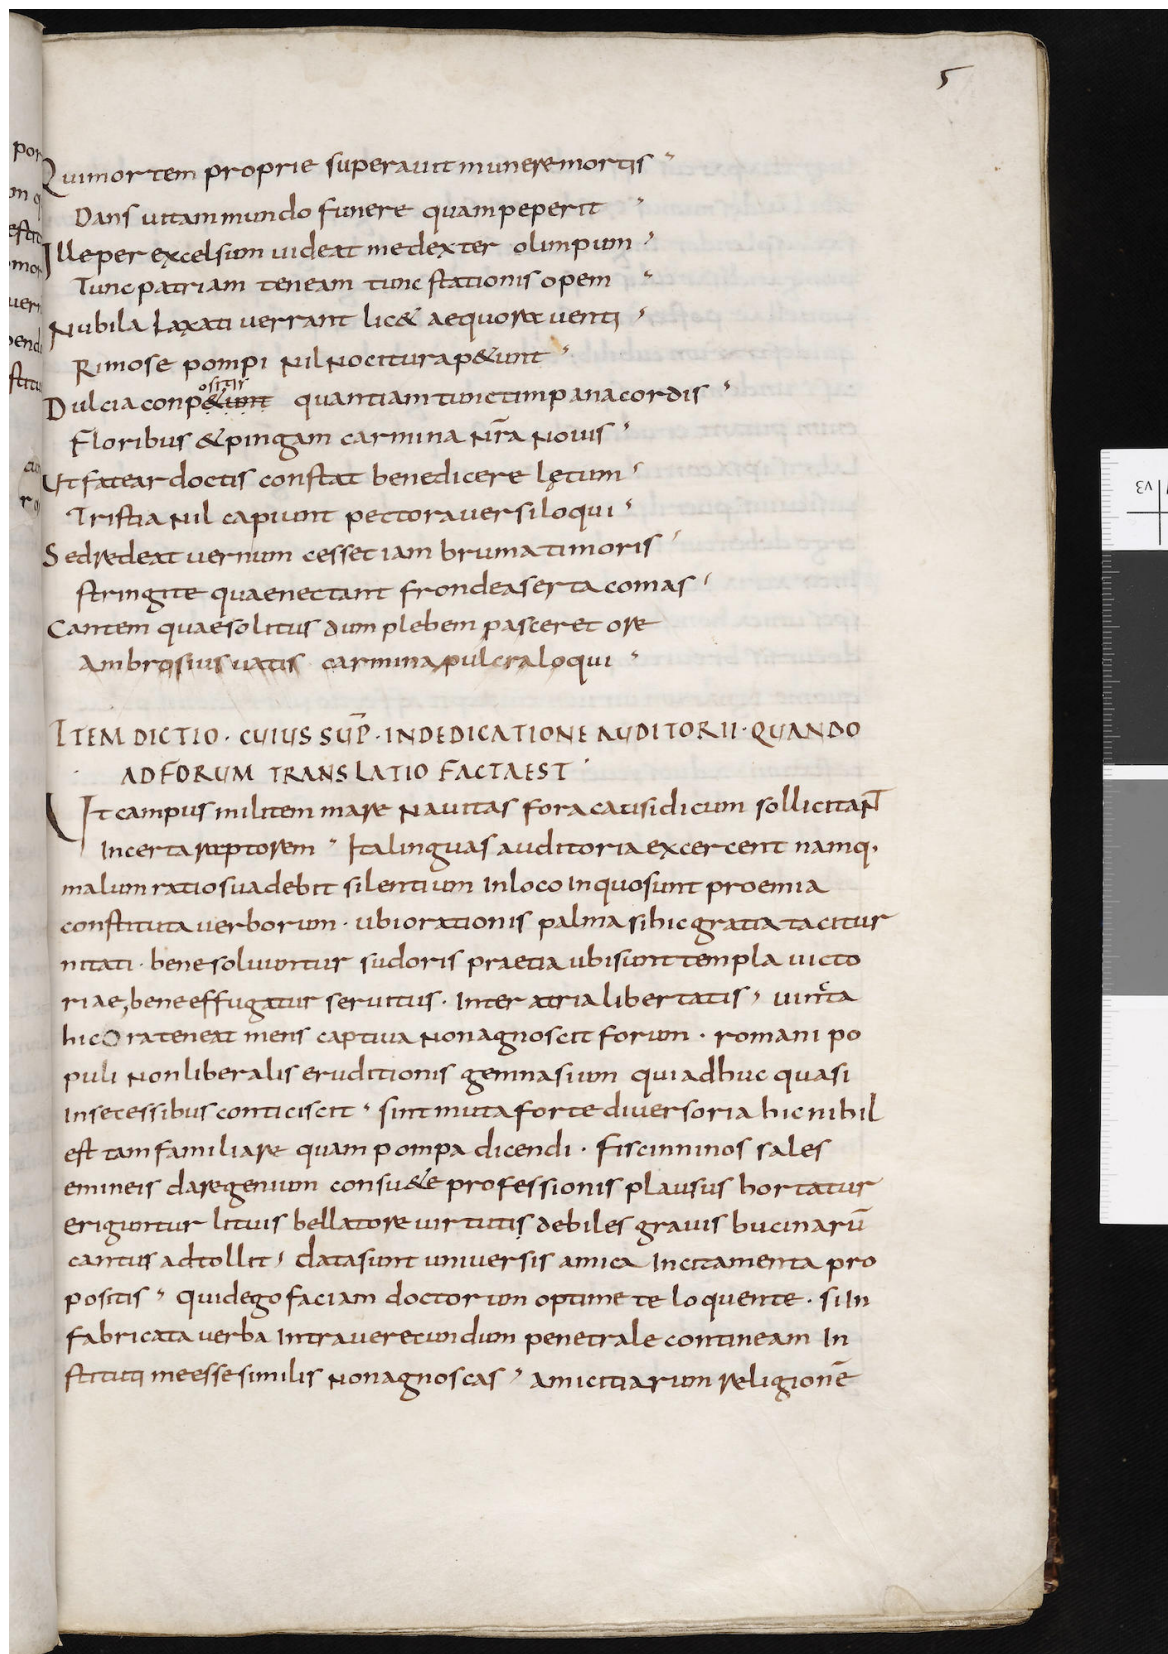 5
Qui mortem proprie superauit munere mortis
Dans uitam mundo funere quam peperit
Ille per excelsum uideat me dexter olimpum
Tunc patriam teneam tunc stationis opem
Nubila laxati uerrant lic& aequora uenti
Rimose pompi nil nocitura p&unt
Dulcia conp&unt ositis quantiam tunc timpana cordis
Floribus & pingam carmina nr̄a nouis
Ut fatear doctis constat benedicere lętum
Tristia nil capiunt pectora uersiloqui
Sed redeat uernum cesset iam bruma timoris
stringite quae nectant frondea serta comas
Cantem quae solitus dum plebem pasceret ore
Ambrosius uatis carmina pulcra loqui
ITEM DICTIO · CUIUS SUP̄ · IN DEDICATIONE AUDITORII · QUANDO
AD FORUM TRANSLATIO FACTA EST
Ut campus militem mare nauitas fora causidicum sollicitant
Incerta raptorem Ita linguas auditoria excercent namq·
malum ratio sua debit silentium In loco In quo sunt proemia
constituta uerborum · ubi orationis palma si hic gratia tacitur
nitati · bene soluuntur sudoris praetia ubi sunt templa uicto
riae, bene effugatur seruitus · Inter atria libertatis, uincta
hic ora teneat mens captiua non agnoscit forum · romani po
puli non liberalis eruditionis gemnasium qui adhuc quasi
In secessibus conticiscit · sint muta forte diuersoria hic nihil
est tam familiare quam pompa dicendi · Fiscinninos sales
emineis dare genium consu&e professionis plausus hortatur
erigiuntur lituis bellatore uirtutis debiles grauis bucinarū
cantus adtollit, data sunt uniuersis amica Incitamenta pro
positis, quid ego faciam doctorum optime te loquente · si In
fabricata uerba Intra uerecundum penetrale contineam In
stituti me esse similis non agnoscas, amicitiarum religionē